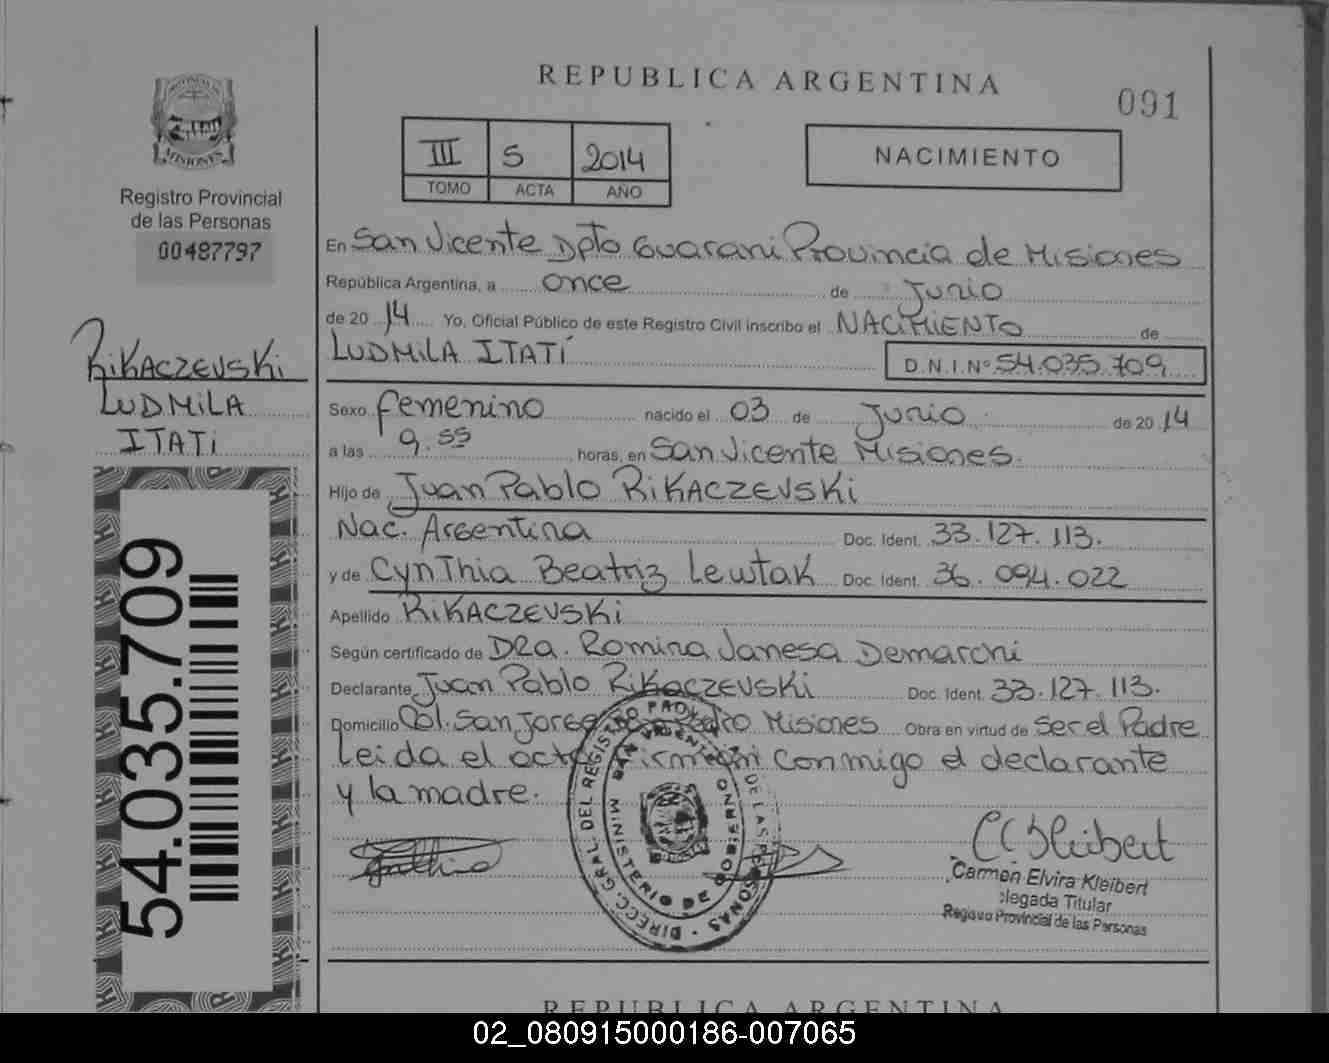 REPUBLICA ARGENTINA
091
III 5 2014
TOMO ACTA AÑO
NACIMIENTO
MISIONES
Registro Provincial
de las Personas
00487797
RiKACZEVSKi
LUDMiLA
ITATi
54.035.709
En San Vicente Dpto Guarani Provincia de Misiones
República Argentina, a once de Junio
de 20 14 Yo, Oficial Público de este Registro Civil inscribo el NACiMiENTO de
LUDMiLA ITATÍ D.N.I.Nº 54.035.709
Sexo femenino nacido el 03 de Junio de 20 14
a las 9.55 horas, en San Vicente Misiones.
Hijo de Juan Pablo RiKACZEVSKi
Nac. Argentina Doc. Ident. 33.127.113.
y de Cynthia Beatriz Lewtak Doc. Ident. 36.094.022
Apellido RiKACZEVSKi
Según certificado de DRa. Romina Vanesa Demarchi
Declarante Juan Pablo RiKaczevski Doc. Ident. 33.127.113.
Domicilio Col. San Jorge San Pedro Misiones Obra en virtud de ser el Padre
Leida el acta firman conmigo el declarante
y la madre.
DIRECC. GRAL. DEL REGISTRO PROV. DE LAS PERSONAS
SAN VICENTE
MINISTERIO DE GOBIERNO
Cynthia
CKleibert
Carmen Elvira Kleibert
legada Titular
Registro Provincial de las Personas
REPUBLICA ARGENTINA
02_080915000186-007065